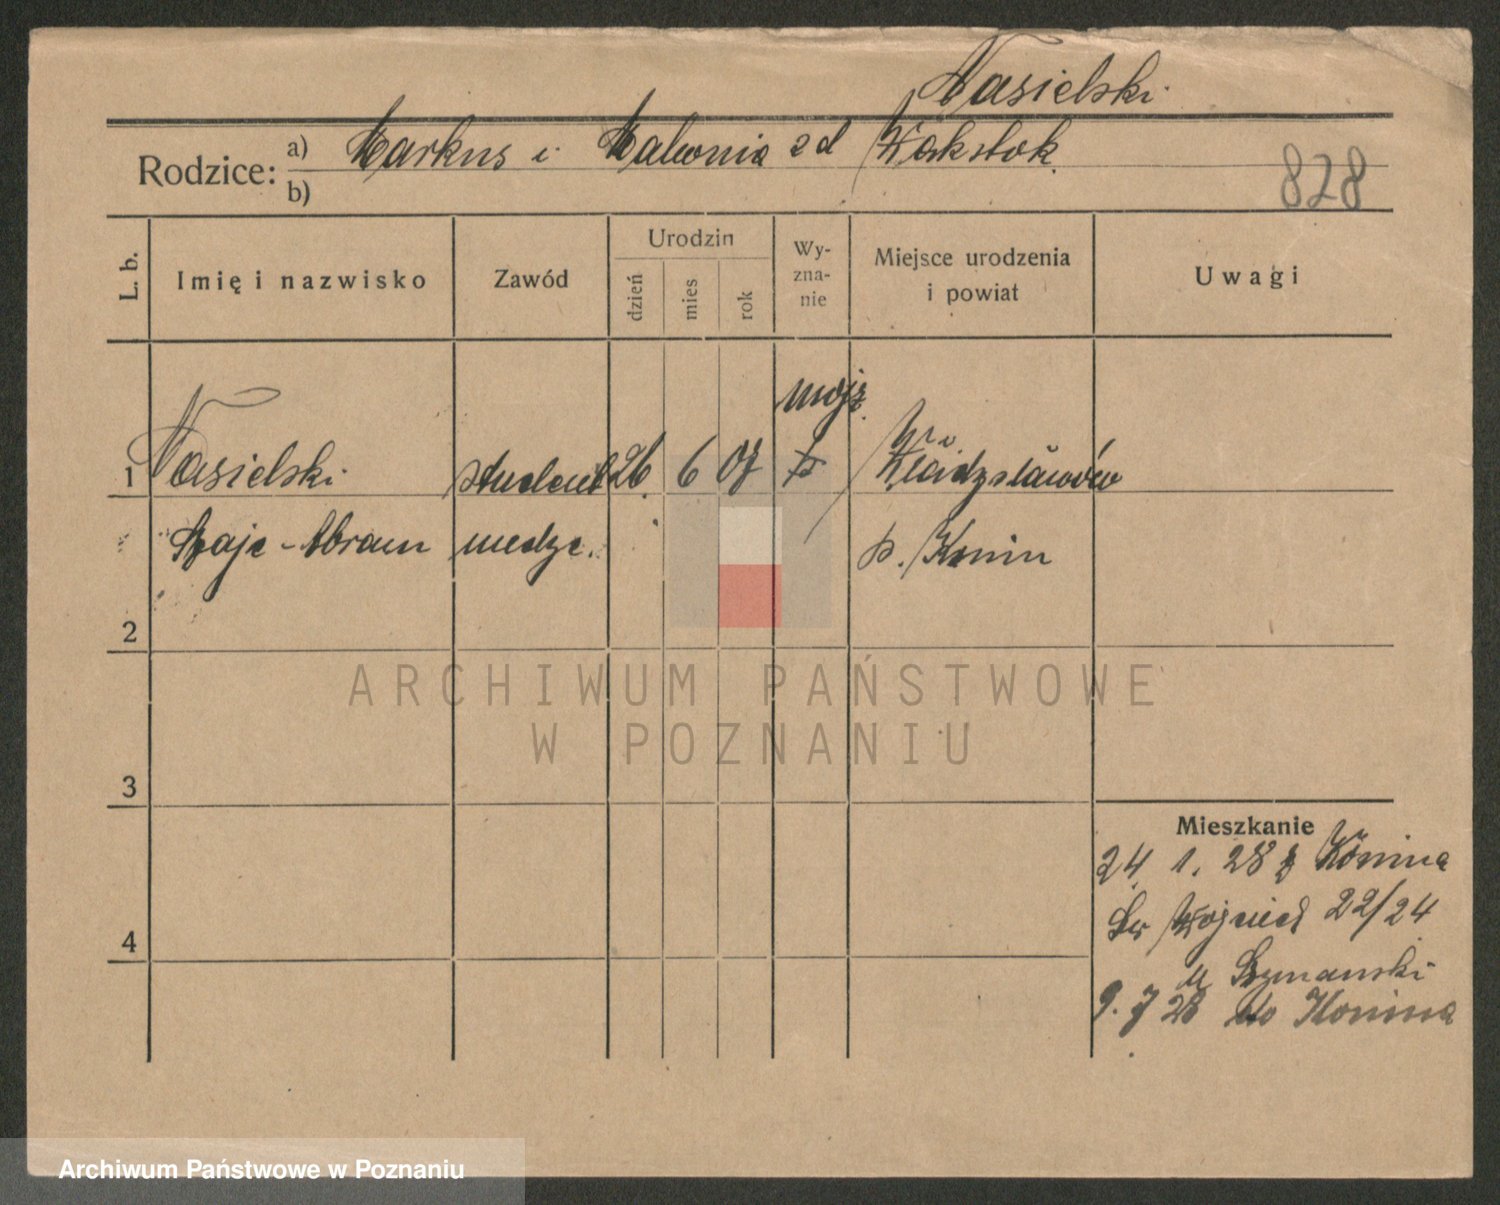 Nasielski
Rodzice: a) Markus i Malwnia zd Wakstok
b)
828
L. b.
Imię i nazwisko
Zawód
Urodzin
dzień
mies
rok
Wy-
zna-
nie
Miejsce urodzenia
i powiat
Uwagi
mojż.
1 Nasielski student 26. 6 07 Władysławów
Szaje-Abram medyc. p. Konin
2
3
4
ARCHIWUM PAŃSTWOWE
W POZNANIU
Mieszkanie
24. 1. 28 z Konina
Św Wojciech 22/24
u Szymanski
9. 7 28 do Konina
Archiwum Państwowe w Poznaniu